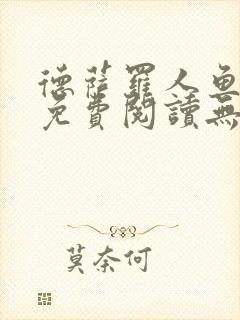 德薩羅人魚
免費閱讀無
莫奈何